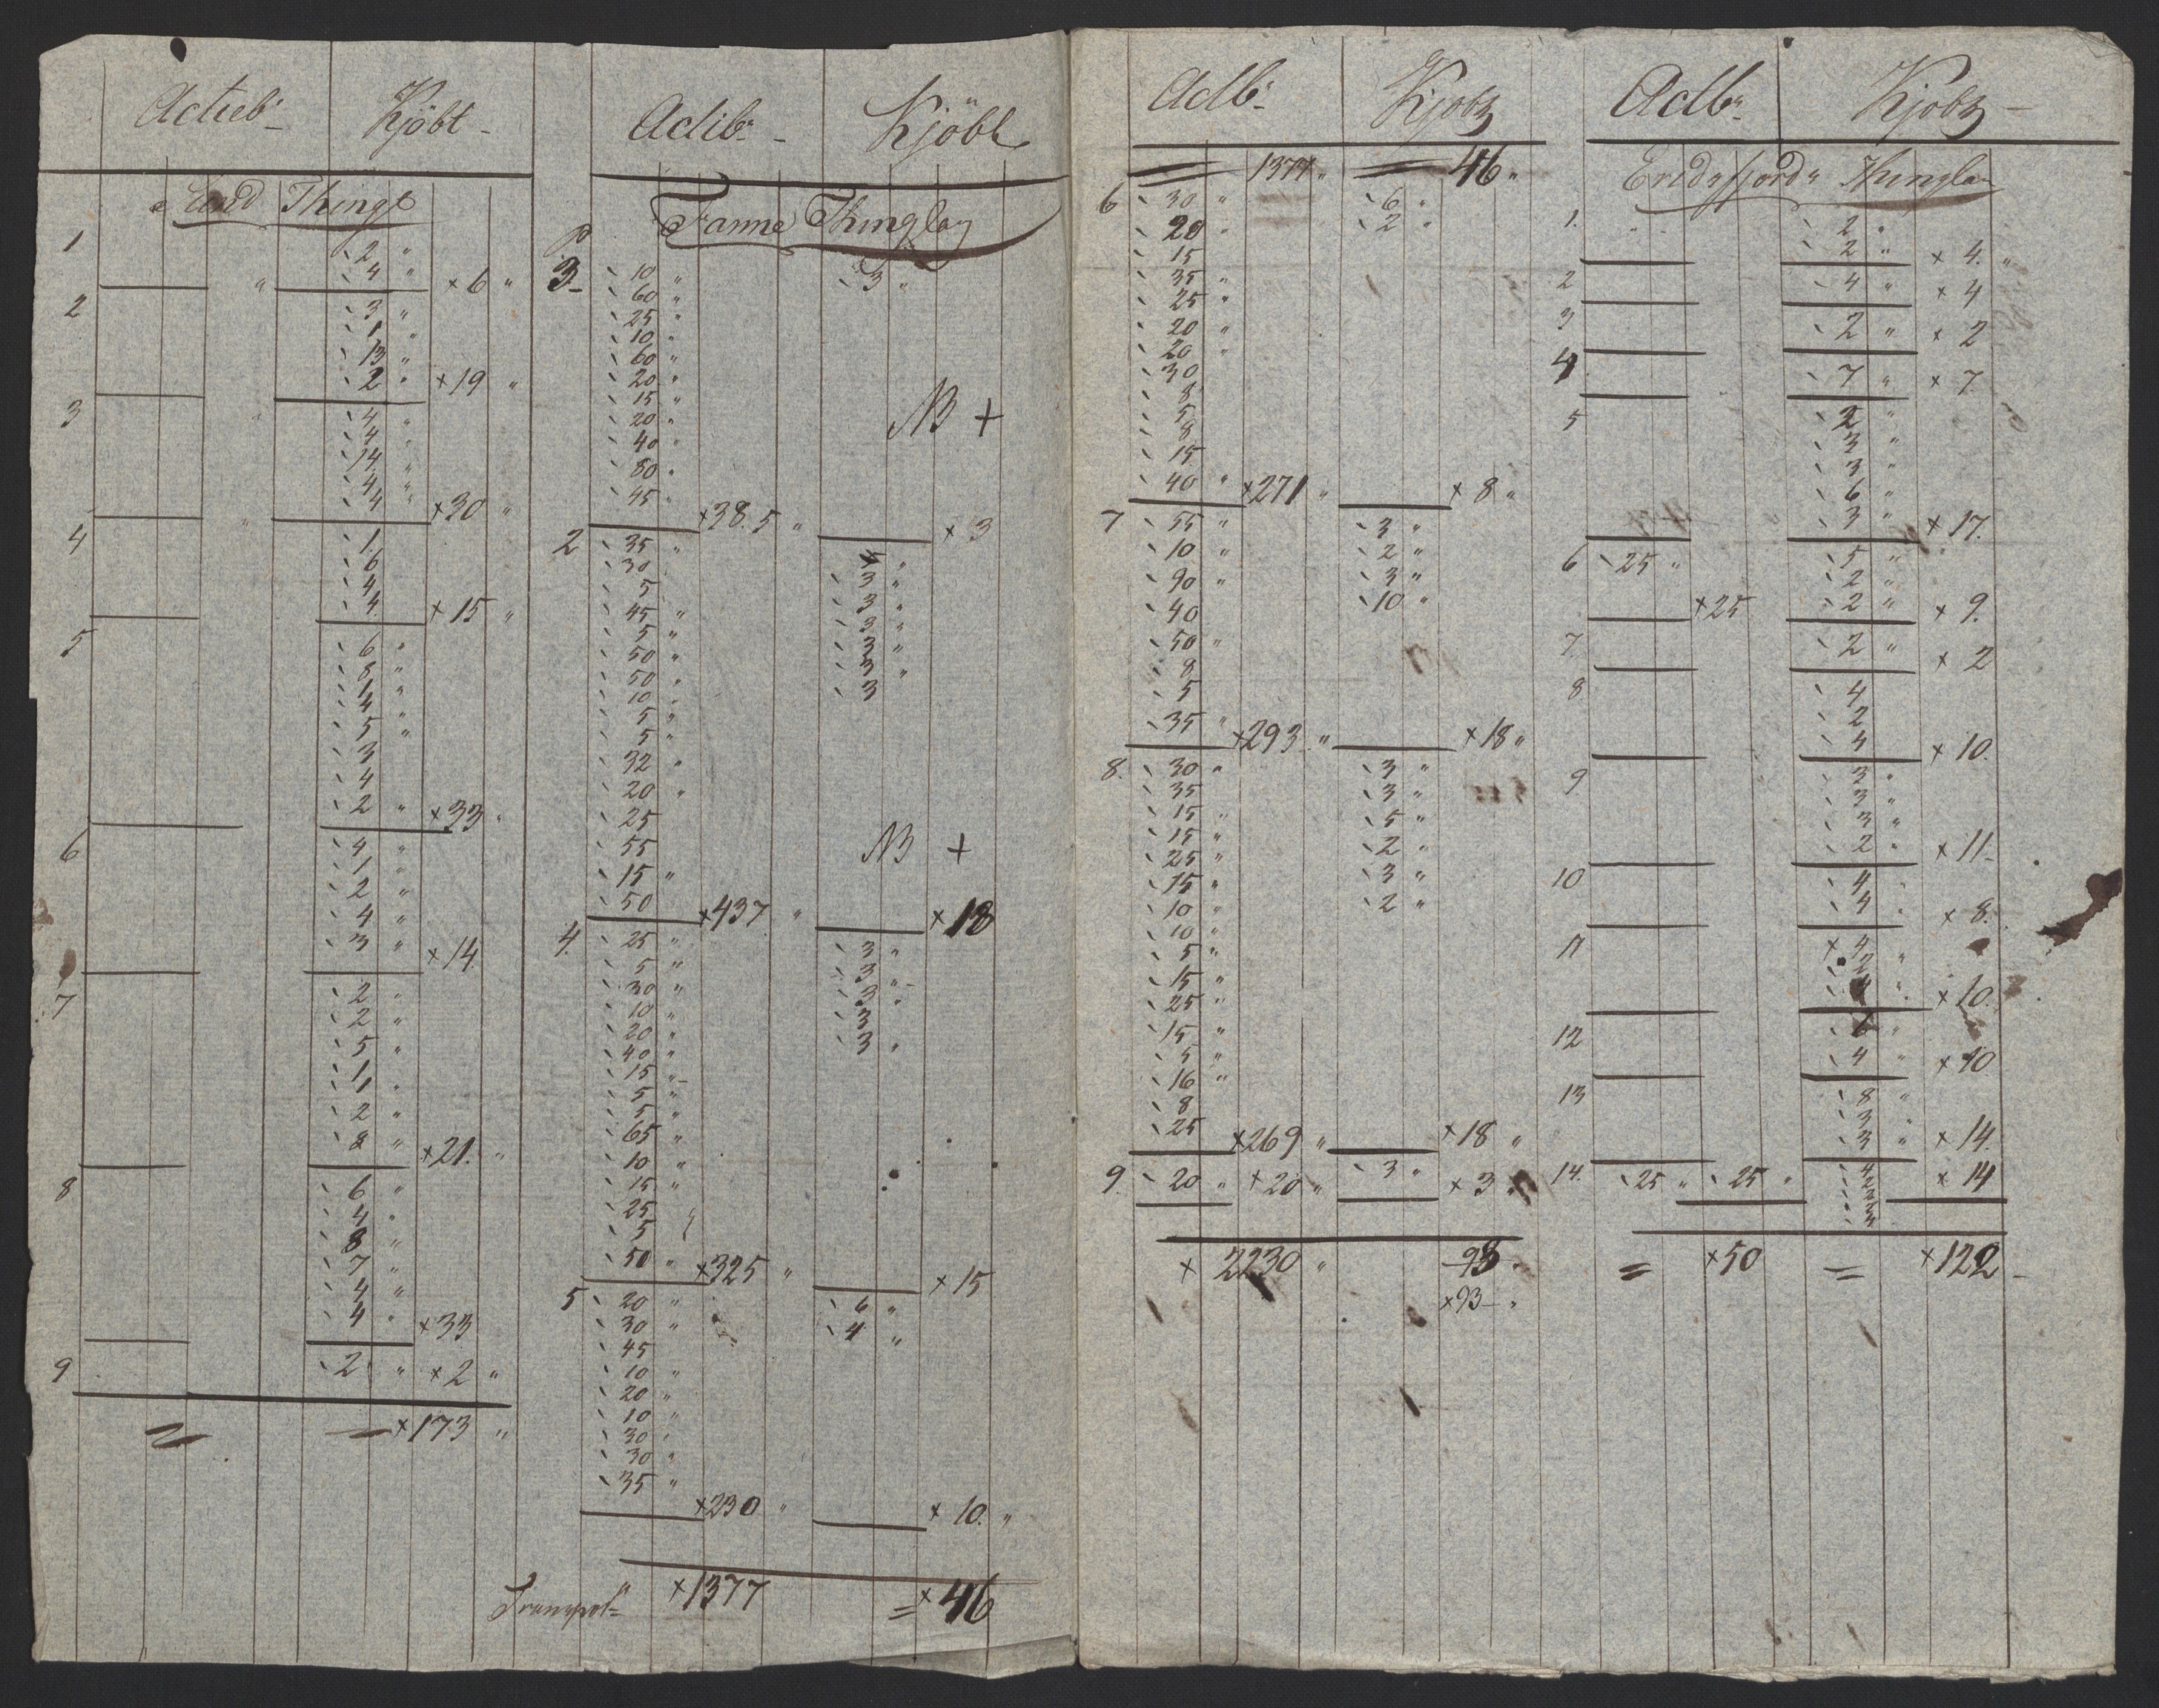 Kjöbt
Thingl
1
2 "
4 " × 6 "
2
3 "
1 "
13 "
2 " × 19 "
3
4 "
4 "
14 "
4 "
4 " × 30 "
4
1
6
4
4 × 15 "
5
6 "
8 "
1 "
4 "
5 "
3
4
2 " × 33 "
6
4 "
1 "
2 "
4 "
3 " × 14
7
2 "
2 "
5 "
1
1 "
2 "
8 " × 21 "
8
6 "
4 "
8 "
7 "
4 "
4 " × 33
9 2 " × 2 "
= × 173 "
Kjöbt
Fanne Thinglag
3 10 " 3 "
60 "
25 "
10 "
60 "
20 "
15 "
20 "
40 "
80 "
45 " × 385 " × 3
NB +
2 35 "
30 3 "
5 3 "
45 " 3 "
5 " 3 "
50 " 3 "
50 " 3
10 "
5 "
5 "
32 "
20 "
25
55 NB +
15 "
50 × 437 " × 18
4 25 " 3 "
5 " 3 "
30 " 3 "
10 " 3
20 " 3 "
40 "
15 "
5 "
5 "
65 "
10 "
15 "
25 "
5
50 " × 325 " × 15
5 20 " 6 "
30 " 4 "
45
10 "
20 "
10 "
30 "
30 "
35 "
× 230 " × 10 "
× 1377 = × 46
Adb.
1377 " 46 "
6 30 " 6 "
20 " 2 "
15
35 "
25 "
20 "
20 "
30
8
5
8
15
40 " × 271 " × 8 "
7 55 " 3 "
10 " 2 "
90 " 3 "
40 10 "
50 "
8
5
35 " × 293 " × 18 "
8. 30 " 3 "
35 3 "
15 " 5 "
15 " 2 "
25 " 3 "
15 " 2 "
10 "
10 "
5 "
15 "
25 "
15 "
5 "
16 "
8
25 × 269 " × 18 "
9. 20 " × 20 " 3 " × 3 "
× 2230 " 98 "
× 93 "
Adb.
Thinglag
1. 2 "
2 " × 4. "
2 4 " × 4
3 2 " × 2
4 7 " × 7
5 2 "
3 "
3 "
6 "
3 " × 17.
6 25 " 5 "
2 "
× 25 2 " × 9.
7 2 " × 2
8 4
2
4 × 10.
9 3 "
3 "
3 "
2 " × 11
10 4 "
4 " × 8.
11 4
2 "
4 " × 10.
12 6 "
4 " × 10
13 8 "
3
3 " × 14.
14. 25 " 25 " × 14
= × 50 = × 122